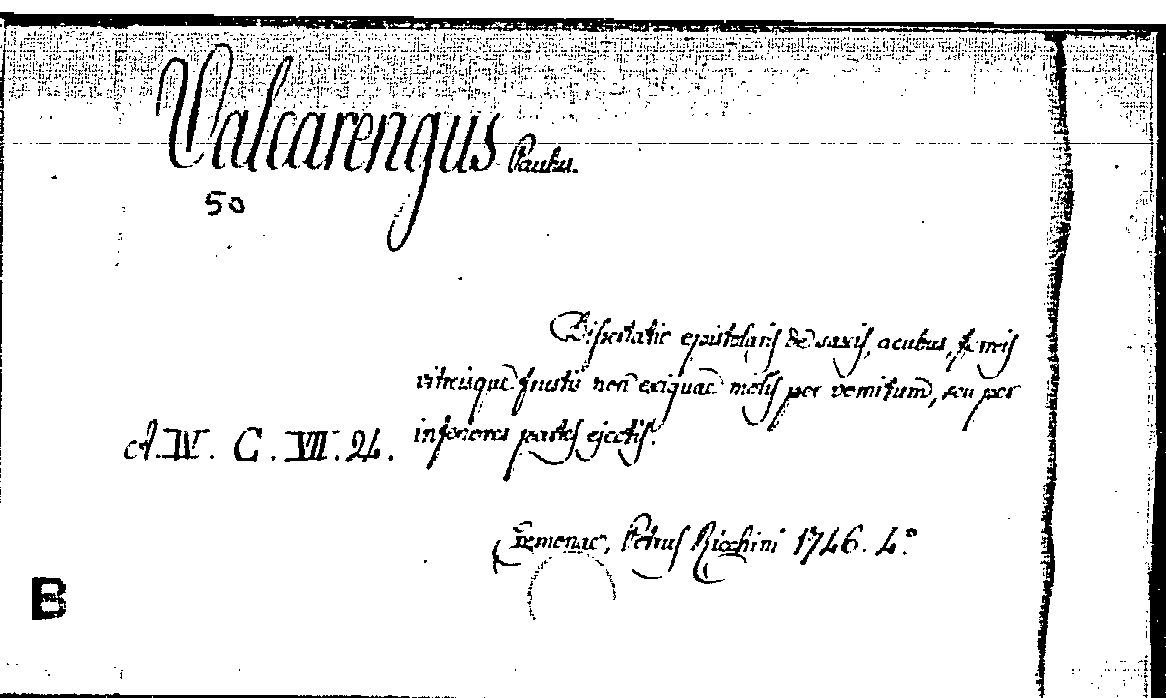 Valcarengus Paulus.
50
Dissertatio epistolaris de saxis, acubus,
vitreisque frustis non exiguae molis per vomitum, seu per
A.IV. C.VII.24. inferiores partes ejectis.
Cremonae, Petrus Ricchini 1746. 4.º
B